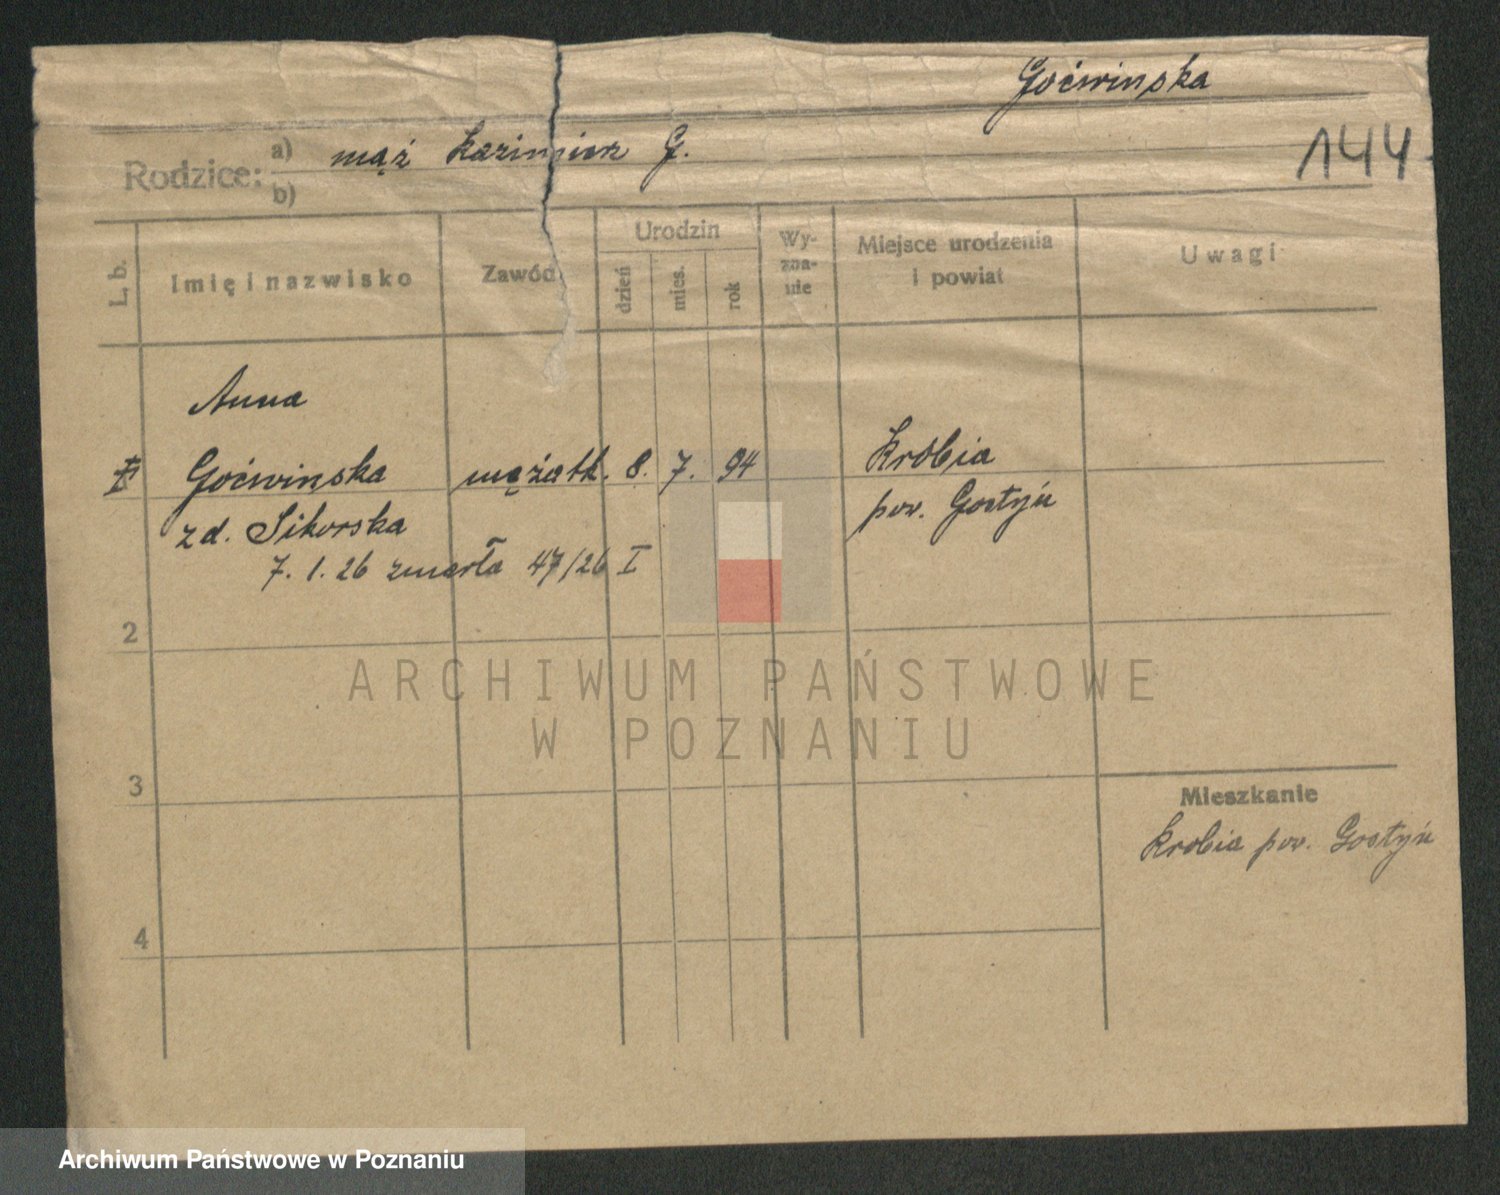 Goćwinska
144
Rodzice: a) mąż Kazimierz G.
b)
L. b.
Imię i nazwisko
Zawód
Urodzin
dzień
mies.
rok
Wy-
zna-
nie
Miejsce urodzenia
i powiat
Uwagi
Anna
Goćwinska mężatk. 8. 7. 94 Krobia
zd. Sikorska pow. Gostyń
7. 1. 26 zmarła 47/26 I
2
3
4
Mieszkanie
Krobia pow. Gostyń
ARCHIWUM PAŃSTWOWE
W POZNANIU
Archiwum Państwowe w Poznaniu